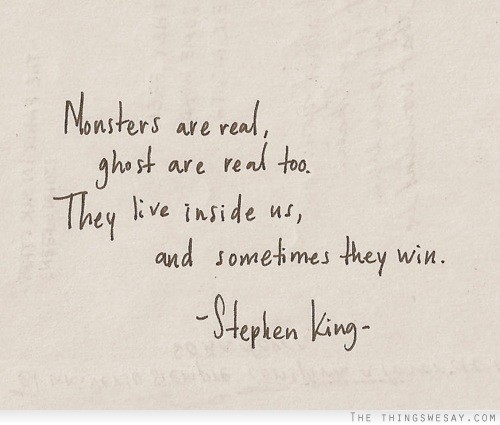 Monsters are real,
ghost are real too.
They live inside us,
and sometimes they win.
-Stephen King-
THE THINGSWESAY.COM